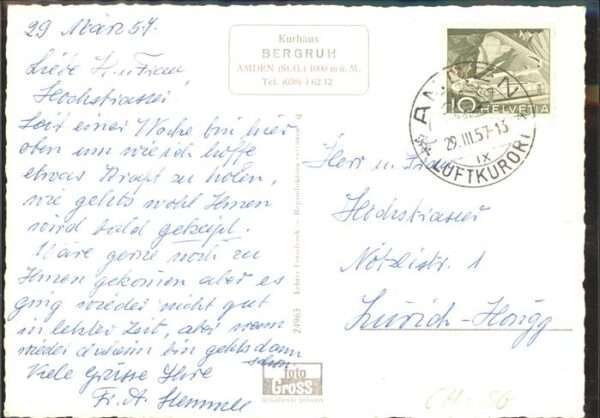 29 März 57.
Liebe H. u Frau
Hochstrasser
Seit einer Woche bin hier
oben um wie ich hoffe
etwas Kraft zu holen,
wie gehts wohl Ihnen
wird bald
Wäre gerne noch zu
Ihnen gekomen aber es
ging wieder nicht gut
in letzter Zeit, aber wenn
wieder daheim bin gehts dann
schon
Viele Grüsse Ihre
Fr. A.
Kurhaus
BERGRUH
AMDEN (St. G.) 1000 m ü. M.
Tel. (058) 4 62 32
10 HELVETIA
AMDEN
29.III.57-13
IX
LUFTKURORT
Herr u. Frau
Hochstrasser
Nötzlistr. 1
Zürich-Höngg
24963
foto
Gross
CH-SG